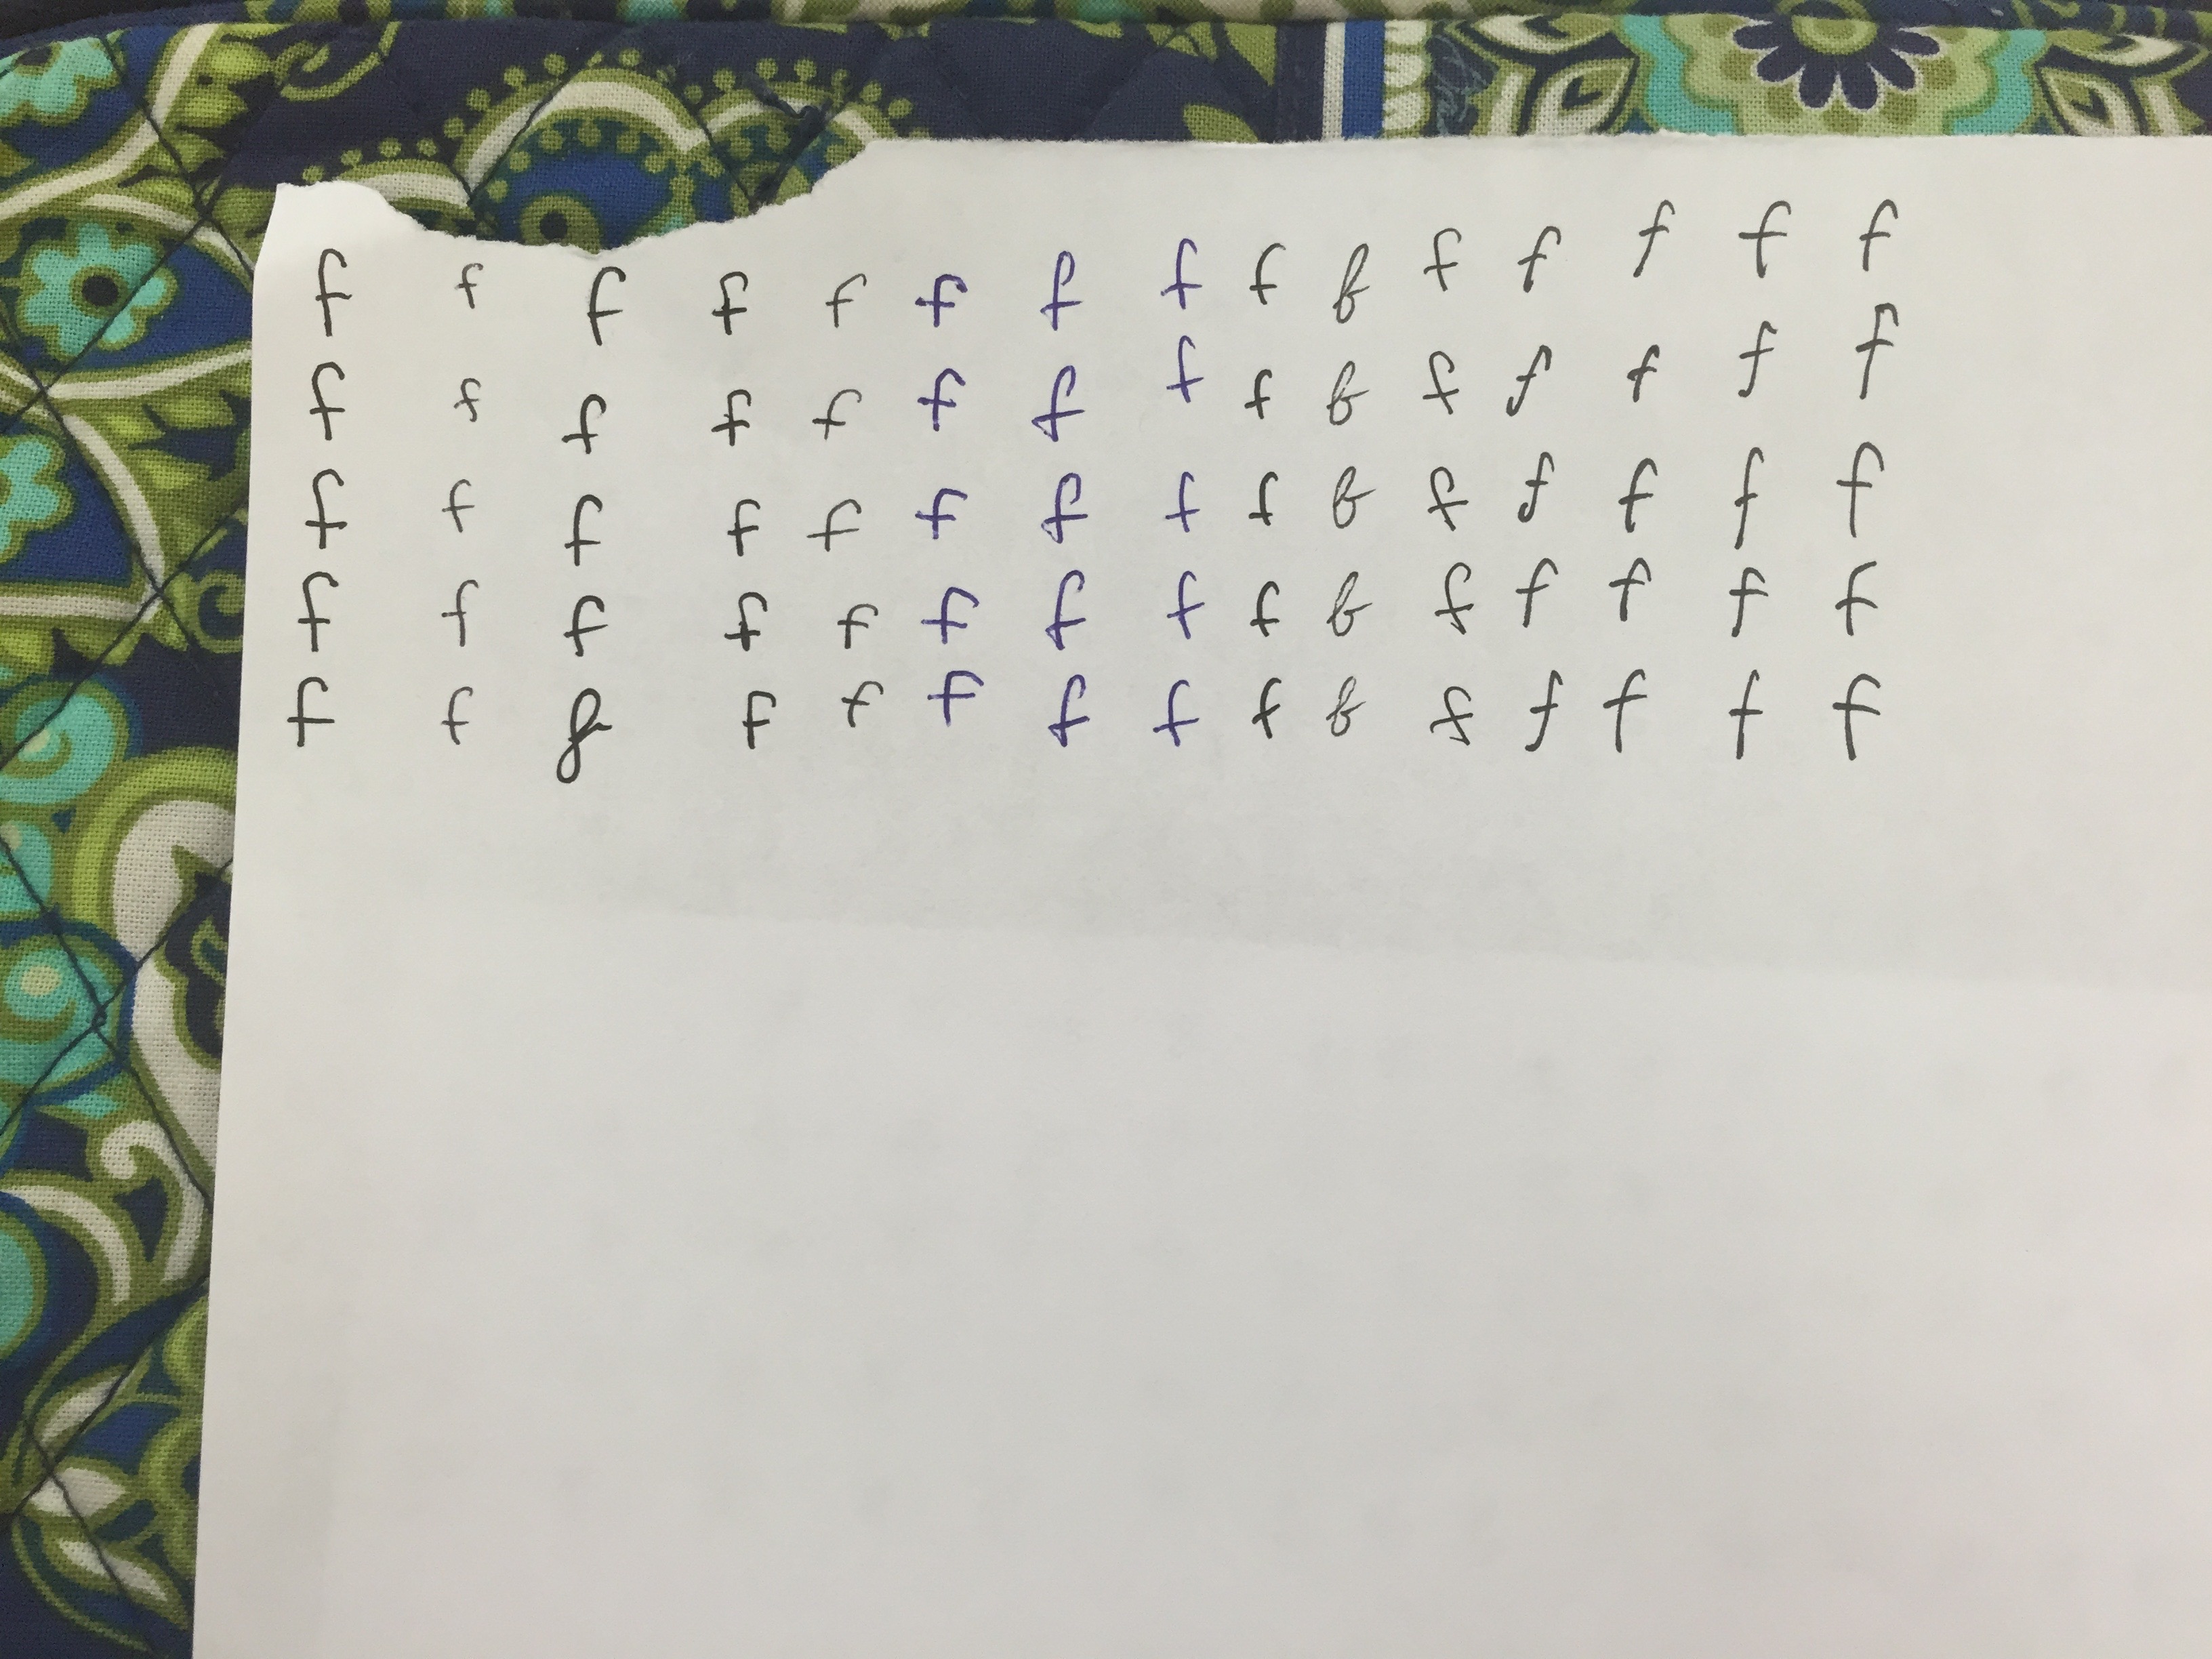 f f f f f f f f f f f f f f f
f f f f f f f f f f f f f f f
f f f f f f f f f f f f f f f
f f f f f f f f f f f f f f f
f f f f f f f f f f f f f f f